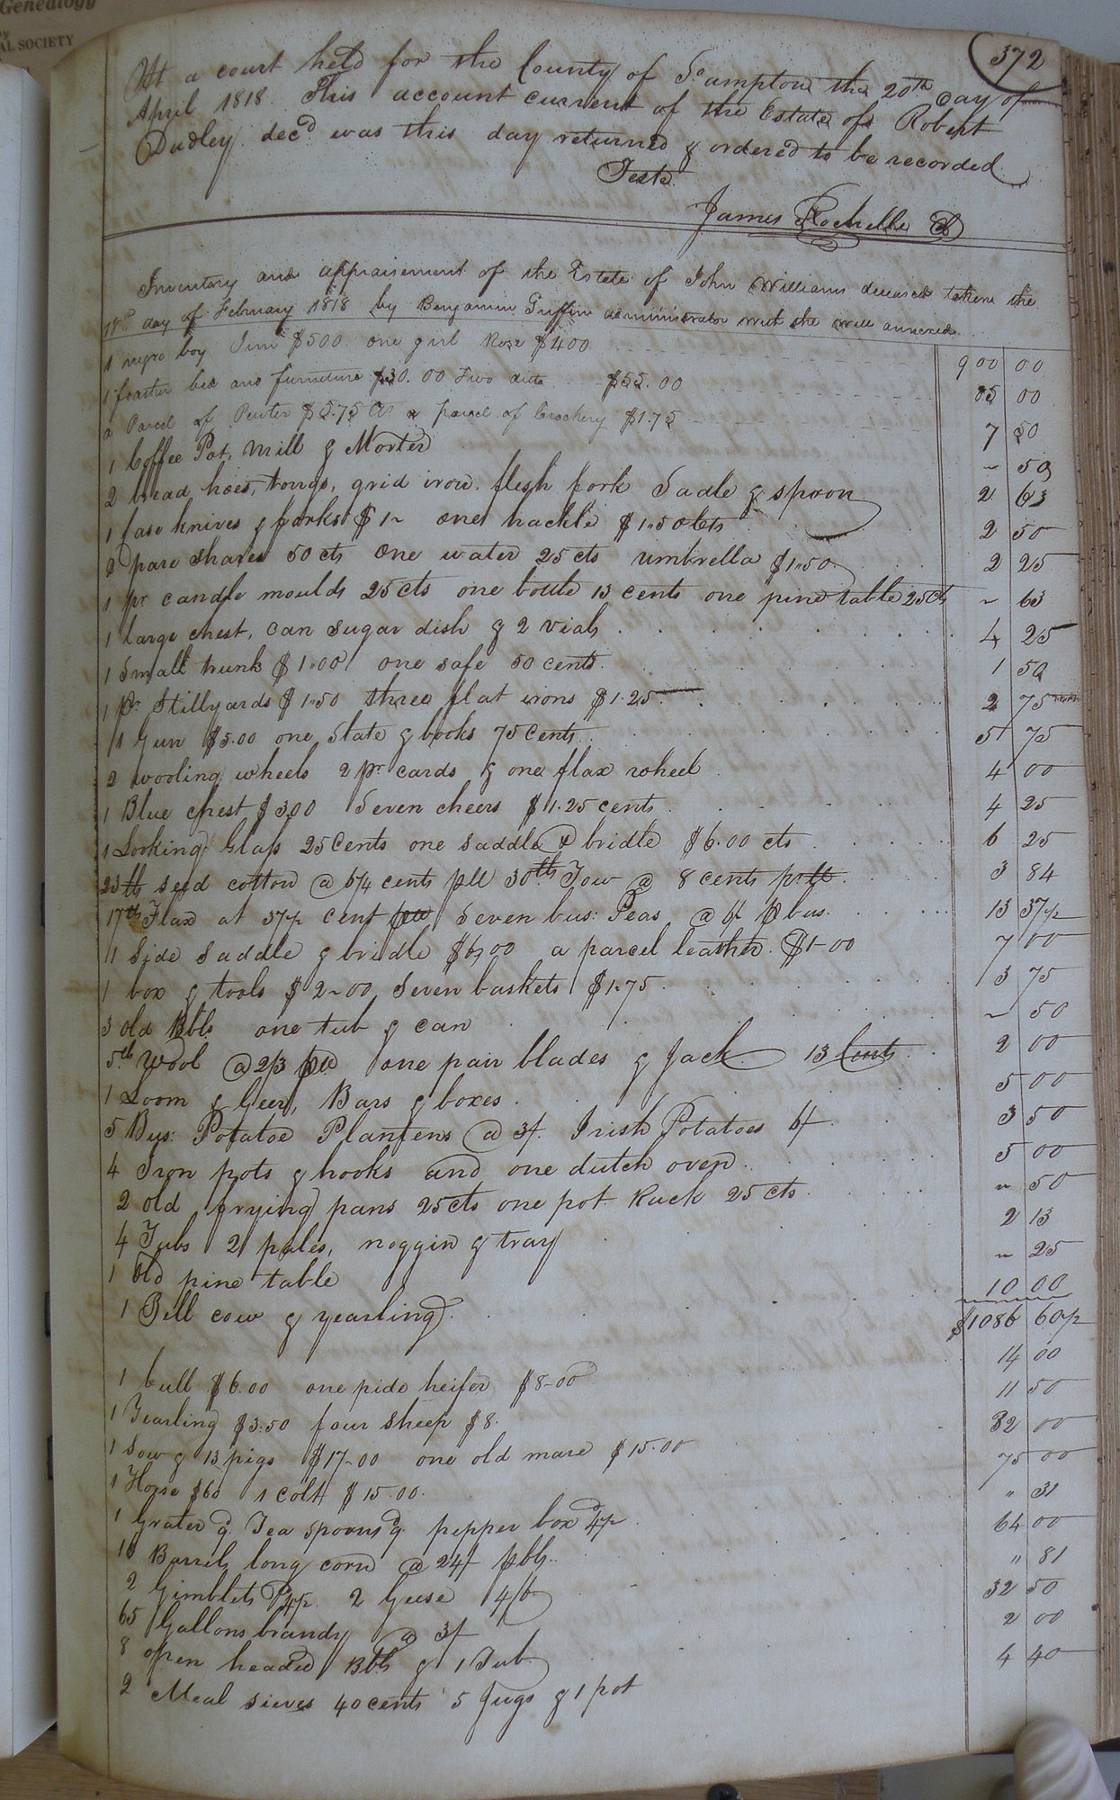 Genealogy
AL SOCIETY
372
At a court held for the County of Sampton the 20th day of
April 1818 This account current of the Estate of Robert
Dudley decd was this day returned & ordered to be recorded
Teste
James Rochelle C
Inventory and appraisement of the Estate of John Williams deceasd taken the
day of February 1818 by Benjamin Griffin administrator with the will annexed
1 negro boy Jim $500 one girl Rose $400 900 00
1 feather bed and furniture $30.00 Two ditto $55.00 85 00
a Parcel of Peuter $5.75 a parcel of Crockery $1.75 7 50
1 Coffee Pot, Mill & Morter ~ 50
2 bread hoes, tongs, grid iron, flesh fork Ladle & spoon 2 63
1 case knives & forks $1~ one hackle $1.50 cts 2 50
2 pare shares 50 cts One water 25 cts umbrella $1.50 2 25
1 pr candle moulds 25 cts one bottle 13 cents one pine table 25 cts ~ 63
1 large chest, can sugar dish & 2 vials 4 25
1 Small trunk $1.00 one safe 50 cents 1 50
1 pr Stillyards $1.50 three flat irons $1.25 2 75
1 Gun $5.00 one Slate & books 75 Cents 5 75
2 wooling wheels 2 pr cards & one flax wheel 4 00
1 Blue chest $3.00 Seven cheers $1.25 cents 4 25
1 Looking Glass 25 Cents one saddle & bridle $6.00 cts 6 25
23 lb seed cotton @ 5/4 cents pll 30 lb Tow @ 8 cents pr lb 3 84
17 lb Flax at 37 1/2 cent Seven bus: Peas @ 6/ p bus 13 37 1/2
1 Side saddle & bridle $6.00 a parcel leather $1-00 7 00
1 box & tools $2-00 Seven baskets $1.75 3 75
3 old Bbls one tub & can ~ 50
5 lb Wool @ 2/3 one pair blades & Jack 13 Cents 2 00
1 Loom & Geer, Bars & boxes 5 00
5 Bus: Potatoe Plantens @ 3/ Irish Potatoes 6/ 3 50
4 Iron pots & hooks and one dutch oven 5 00
2 old frying pans 25 cts one pot Rack 25 cts ~ 50
4 Tubs 2 pales, noggin & tray 2 13
1 old pine table ~ 25
1 Bell cow & yearling 10 00
$1086 60 1/2
1 bull $6.00 one pide heifer $8-00 14 00
1 Yearling $3.50 four Sheep $8. 11 50
1 Sow & 13 pigs $17-00 one old mare $15.00 32 00
1 Horse $60 1 colt $15.00 75 00
1 Grater Tea spoons pepper box " 31
16 Barrels long corn @ 24/ p bbl 64 00
2 Gimblets 2 Geese 4/6 " 81
65 Gallons brandy @ 3/ 32 50
8 open headed Bbls & 1 Tub 2 00
2 Meal sieves 40 cents 5 Jugs & 1 pot 4 40